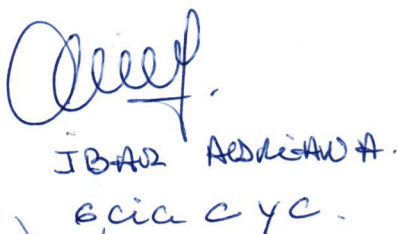 IBAR ADRIANA.
Gcia C y C.